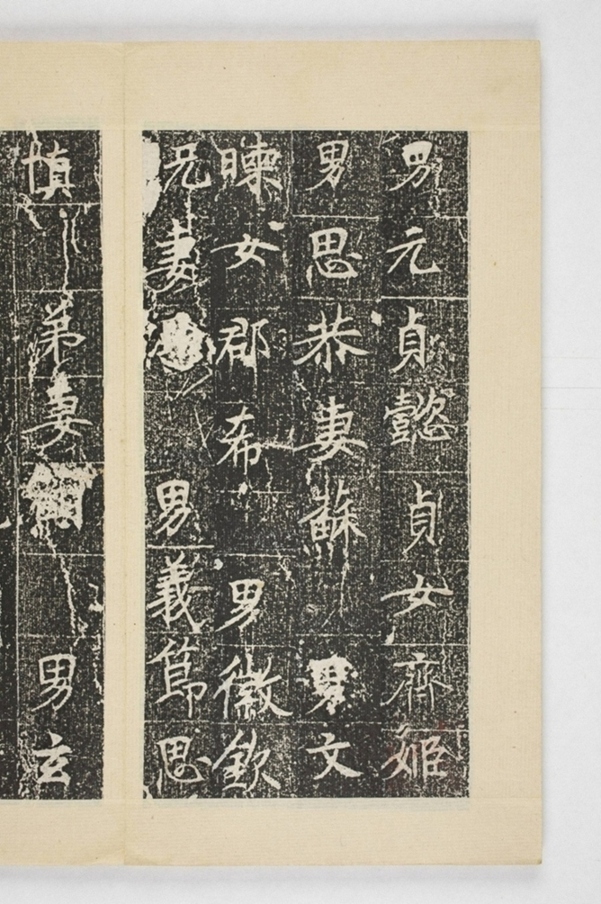 男元貞懿貞女齊姬
男思恭妻蘇男文
暕女郡希男徽欽
兄妻男義節思
慎弟妻男玄